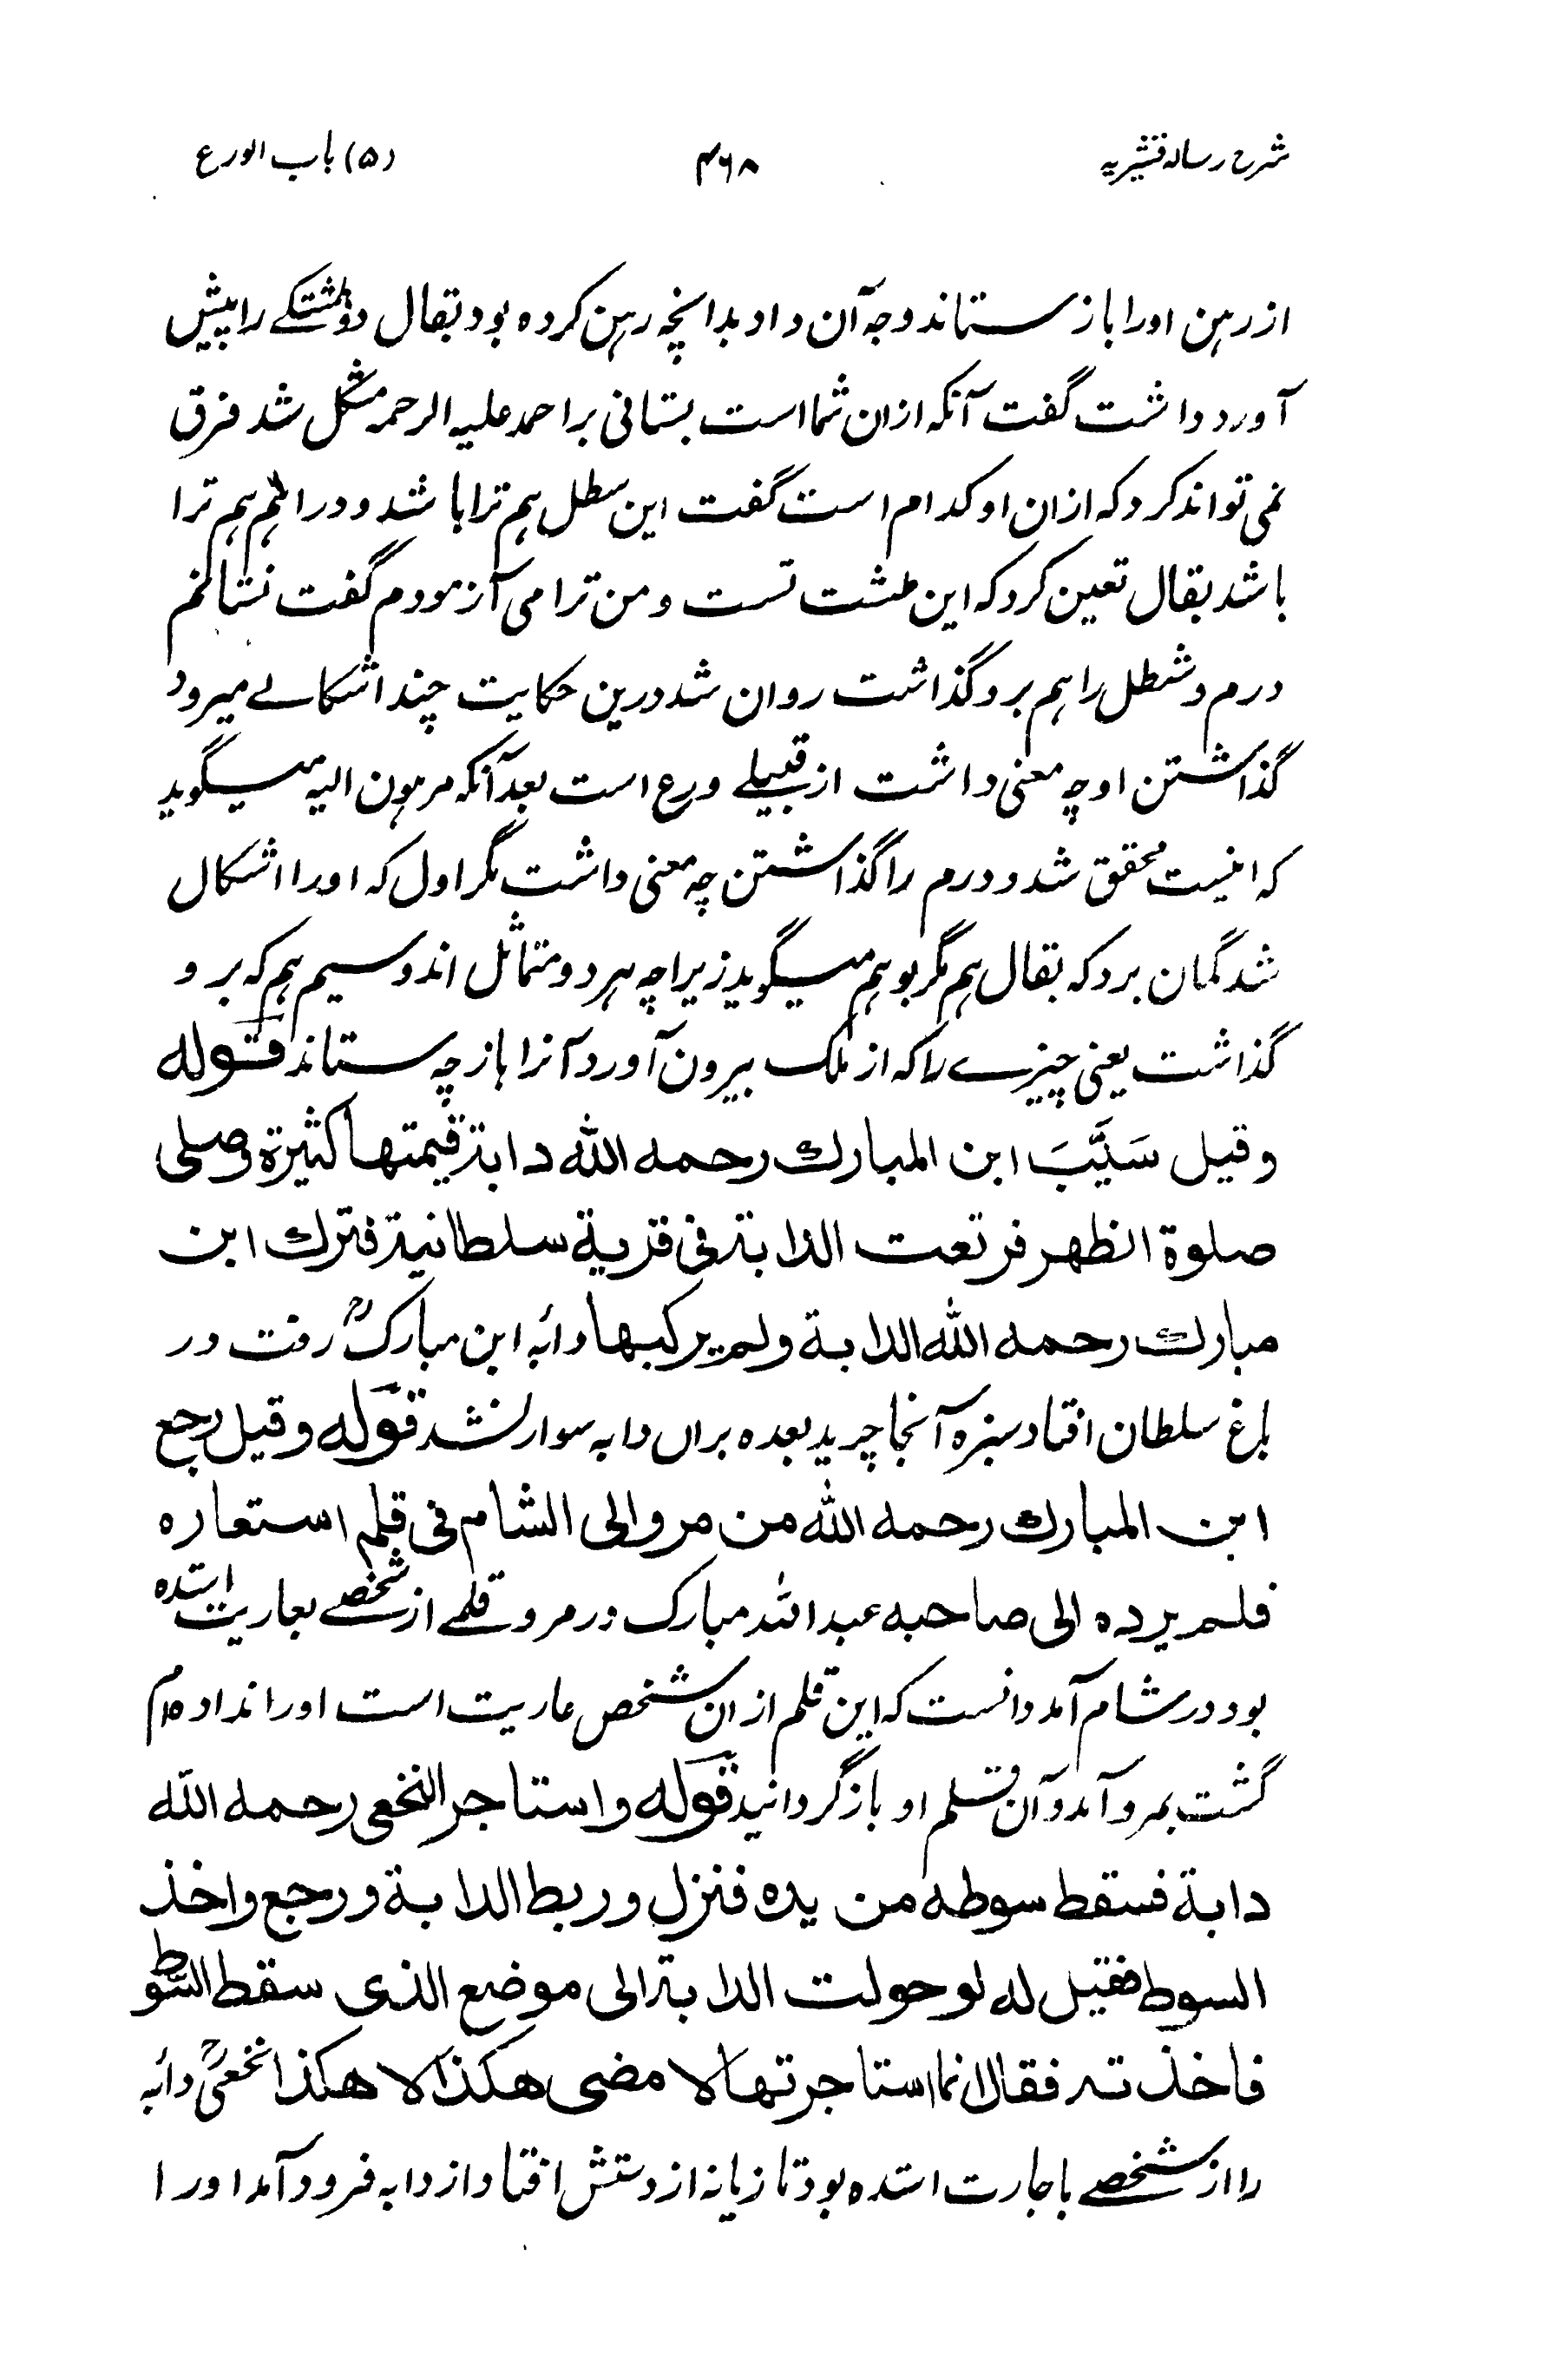 شرح رساله قشیریه
۴۶۸
(۵) باب الورع
از رہن اورا باز ستاند وجہ آن داد بدانچہ رہن کردہ بود بقال دو طشتکے را پیش
آورد داشت گفت آنکہ ازان شما است بستانی بر احمد علیہ الرحمہ مشکل شد فرق
نمی تواند کرد کہ ازان او کدام است گفت این سطل ہم ترا باشد و دراہم ہم ترا
باشد بقال تعین کرد کہ این طشت تست و من ترا می آزمودم گفت نستانم
درم و سطل را ہم برو گذاشت روان شد درین حکایت چند اشکالے میرود
گذاشتن او چہ معنی داشت از قبیلے ورع است بعد آنکہ مرہون الیہ میگوید
کہ اینست محقق شد و درم را گذاشتن چہ معنی داشت مگر اول کہ اورا اشکال
شد گمان برد کہ بقال ہم مگر بوہم میگوید زیراچہ ہر دو متماثل اند و سیم ہم کہ برو
گذاشت یعنی چیزے را کہ از ملک بیرون آورد آنرا باز چہ ستاند قوله
وقیل سَیَّبَ ابن المبارك رحمه الله دابة قیمتها کثیرة وصلی
صلوة الظهر فرتعت الدابة فی قریة سلطانیة فترك ابن
مبارك رحمه الله الدابة ولم یرکبها دابہ ابن مبارکؒ رفت در
باغ سلطان افتاد سبزہ آنجا چرید بعدہ براں دابہ سوار نشد قوله وقیل رجع
ابن المبارك رحمه الله من مرو الی الشام فی قلم استعاره
فلم یرده الی صاحبه عبد اللہ مبارک در مرو قلمے از شخصے بعاریت استدہ
بود در شام آمد دانست کہ این قلم ازان شخص عاریت است اورا ندادہ ام
گشت بمرو آمد و آن قلم او باز گردانید قوله واستاجر النخعی رحمه الله
دابة فسقط سوطه من یده فنزل وربط الدابة ورجع واخذ
السوط فقیل له لو حولت الدابة الی موضع الذی سقط السوط
فاخذته فقال انما استاجرتها لا مضی هکذا لا هکذا نخعیؒ دابہ
را از شخصے باجارت استدہ بود تا زیانہ از دستش افتاد از دابہ فرود آمد اورا